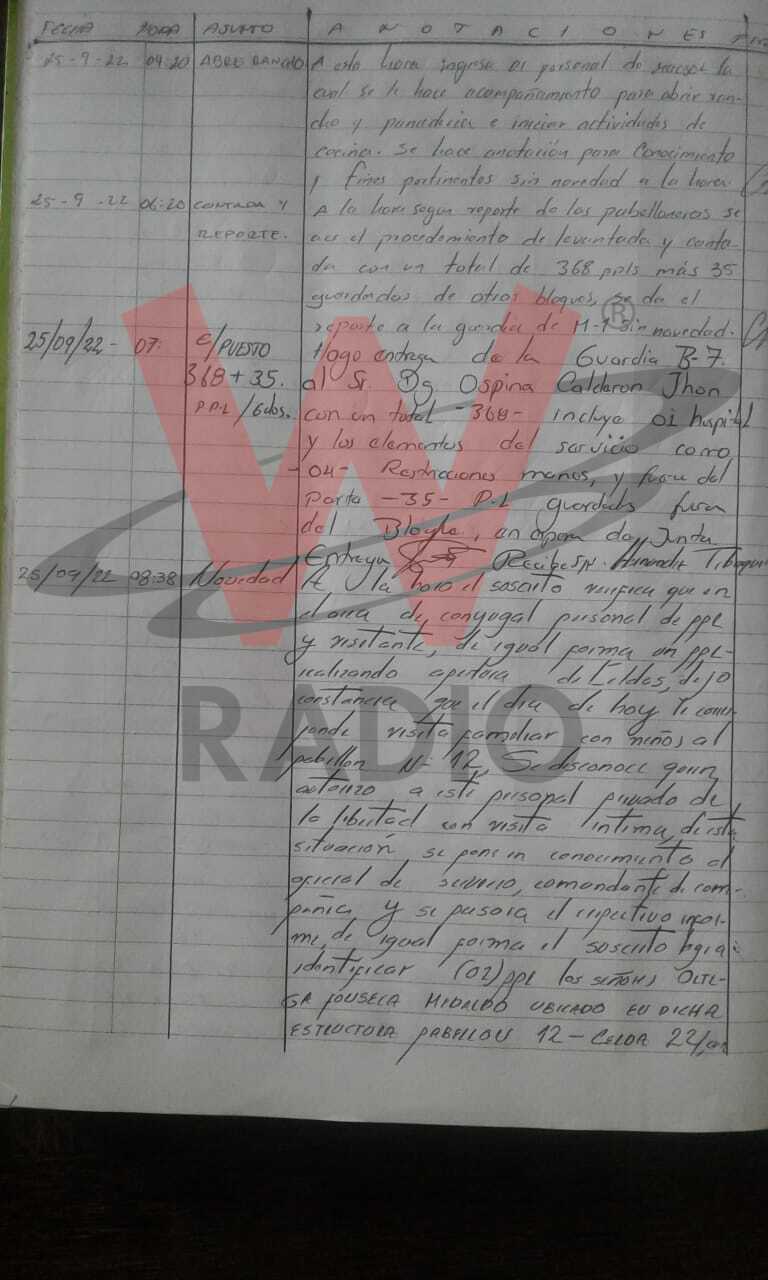 FECHA HORA ASUNTO ANOTACIONES
25-9-22 04:20 ABRE RANCHO A esta hora ingresa el personal de la
cual se le hace acompañamiento para abrir ran-
cho y panaderia e iniciar actividades de
cocina. Se hace anotación para conocimiento
y fines pertinentes sin novedad a la hora.
25-9-22 06:20 CONTADA Y A la hora segun reporte de los pabelloneros se
REPORTE. el procedimiento de levantada y conta-
da con un total de 368 ppls más 35
guardados de otros bloques, se da el
reporte a la guardia de sin novedad.
25/09/22- 07: C/PUESTO Hago entrega de la Guardia B-7.
368+35. al Sr. Dg Ospina Calderon Jhon
P.P.L/Gdos. con un total -368- incluye 01 hospital
y los elementos del servicio como
-04- Restricciones manos, y fuera del
Parte -35- P.L guardados fuera
del Bloque, en espera de Junta
Entrega Recibe
25/09/22 08:38 Novedad A la hora el suscrito verifica que en
el area de conyugal personal de ppl
y visitante, de igual forma un ppl-
realizando apertura de celdas, dejo
constancia que el dia de hoy le corres-
ponde visita familiar con niños al
pabellon N= 12, Se desconoce quien
autorizo a este personal privado de
la libertad con visita intima, de esta
situación se pone en conocimiento al
oficial de servicio, comandante de com-
pañia y se pasara el respectivo infor-
me, de igual forma el suscrito logra
identificar (02) ppl los señores ORTE-
GA FONSECA HIDALDO UBICADO EN DICHA
ESTRUCTURA PABELLON 12 - CELDA 22,
W
®
RADIO